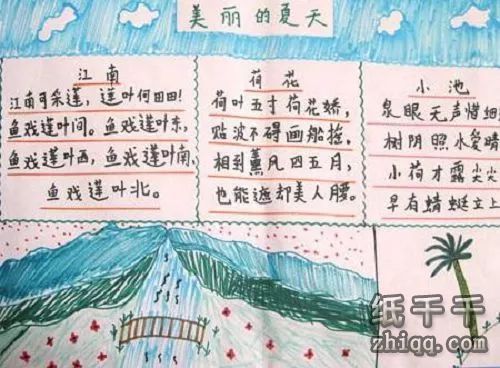 美丽的夏天
江南
江南可采莲，莲叶何田田!
鱼戏莲叶间。鱼戏莲叶东，
鱼戏莲叶西，鱼戏莲叶南，
鱼戏莲叶北。
荷花
荷叶五寸荷花娇，
贴波不碍画船摇，
相到薰风四五月，
也能遮却美人腰。
小池
泉眼无声惜
树阴照水爱晴
小荷才露尖尖
早有蜻蜓立上
纸千千
zhiqq.com